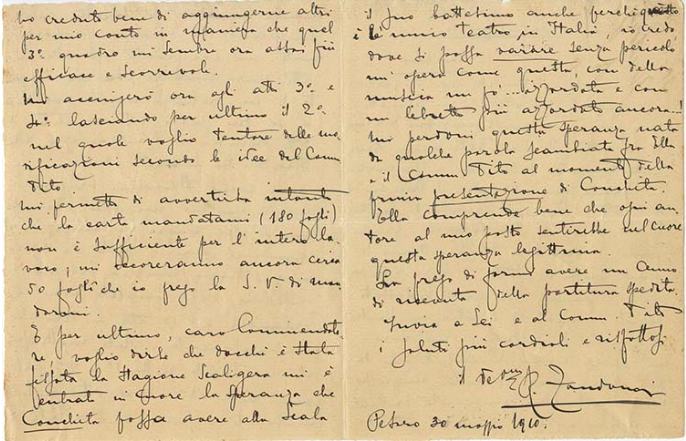 ho creduto bene di aggiungerne altri
per mio conto in maniera che quel
3º quadro mi sembra ora assai più
efficace e scorrevole.
Mi accingerò ora agli atti 3º e
4º lasciando per ultimo il 2º
nel quale voglio tentare delle mo-
dificazioni secondo le idee del Comm
Tito
Mi permetto di avvertirla intanto
che la carta mandatami (180 fogli)
non è sufficiente per l'intero la-
voro; mi occoreranno ancora circa
50 fogli che io prego la S. V. di man-
darmi.
E per ultimo, caro Commendato-
re, voglio dirle che dacchè è stata
fissata la Stagione Scaligera mi è
entrata in cuore la speranza che
Conchita possa avere alla Scala
il suo battesimo anche perchè questo
è l'unico teatro in Italia, io credo
dove si possa varare senza pericolo
un'opera come questa, con della
musica un pò... azzardata e con
un libretto più azzardato ancora...!
Mi perdoni questa speranza nata
da qualche parola scambiata fra Ella
e il Comm Tito al momento della
prima presentazione di Conchita.
Ella comprende bene che ogni au-
tore al mio posto sentirebbe nel cuore
questa speranza legittima.
La prego di farmi avere un cenno
di ricevuta della partitura spedita.
Invio a Lei e al Comm. Tito
i saluti più cordiali e rispettosi
il
R. Zandonai
Pesaro 30 maggio 1910.